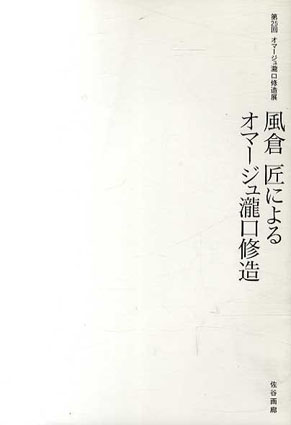 第25回 オマージュ瀧口修造展
風倉 匠による
オマージュ瀧口修造
佐谷画廊